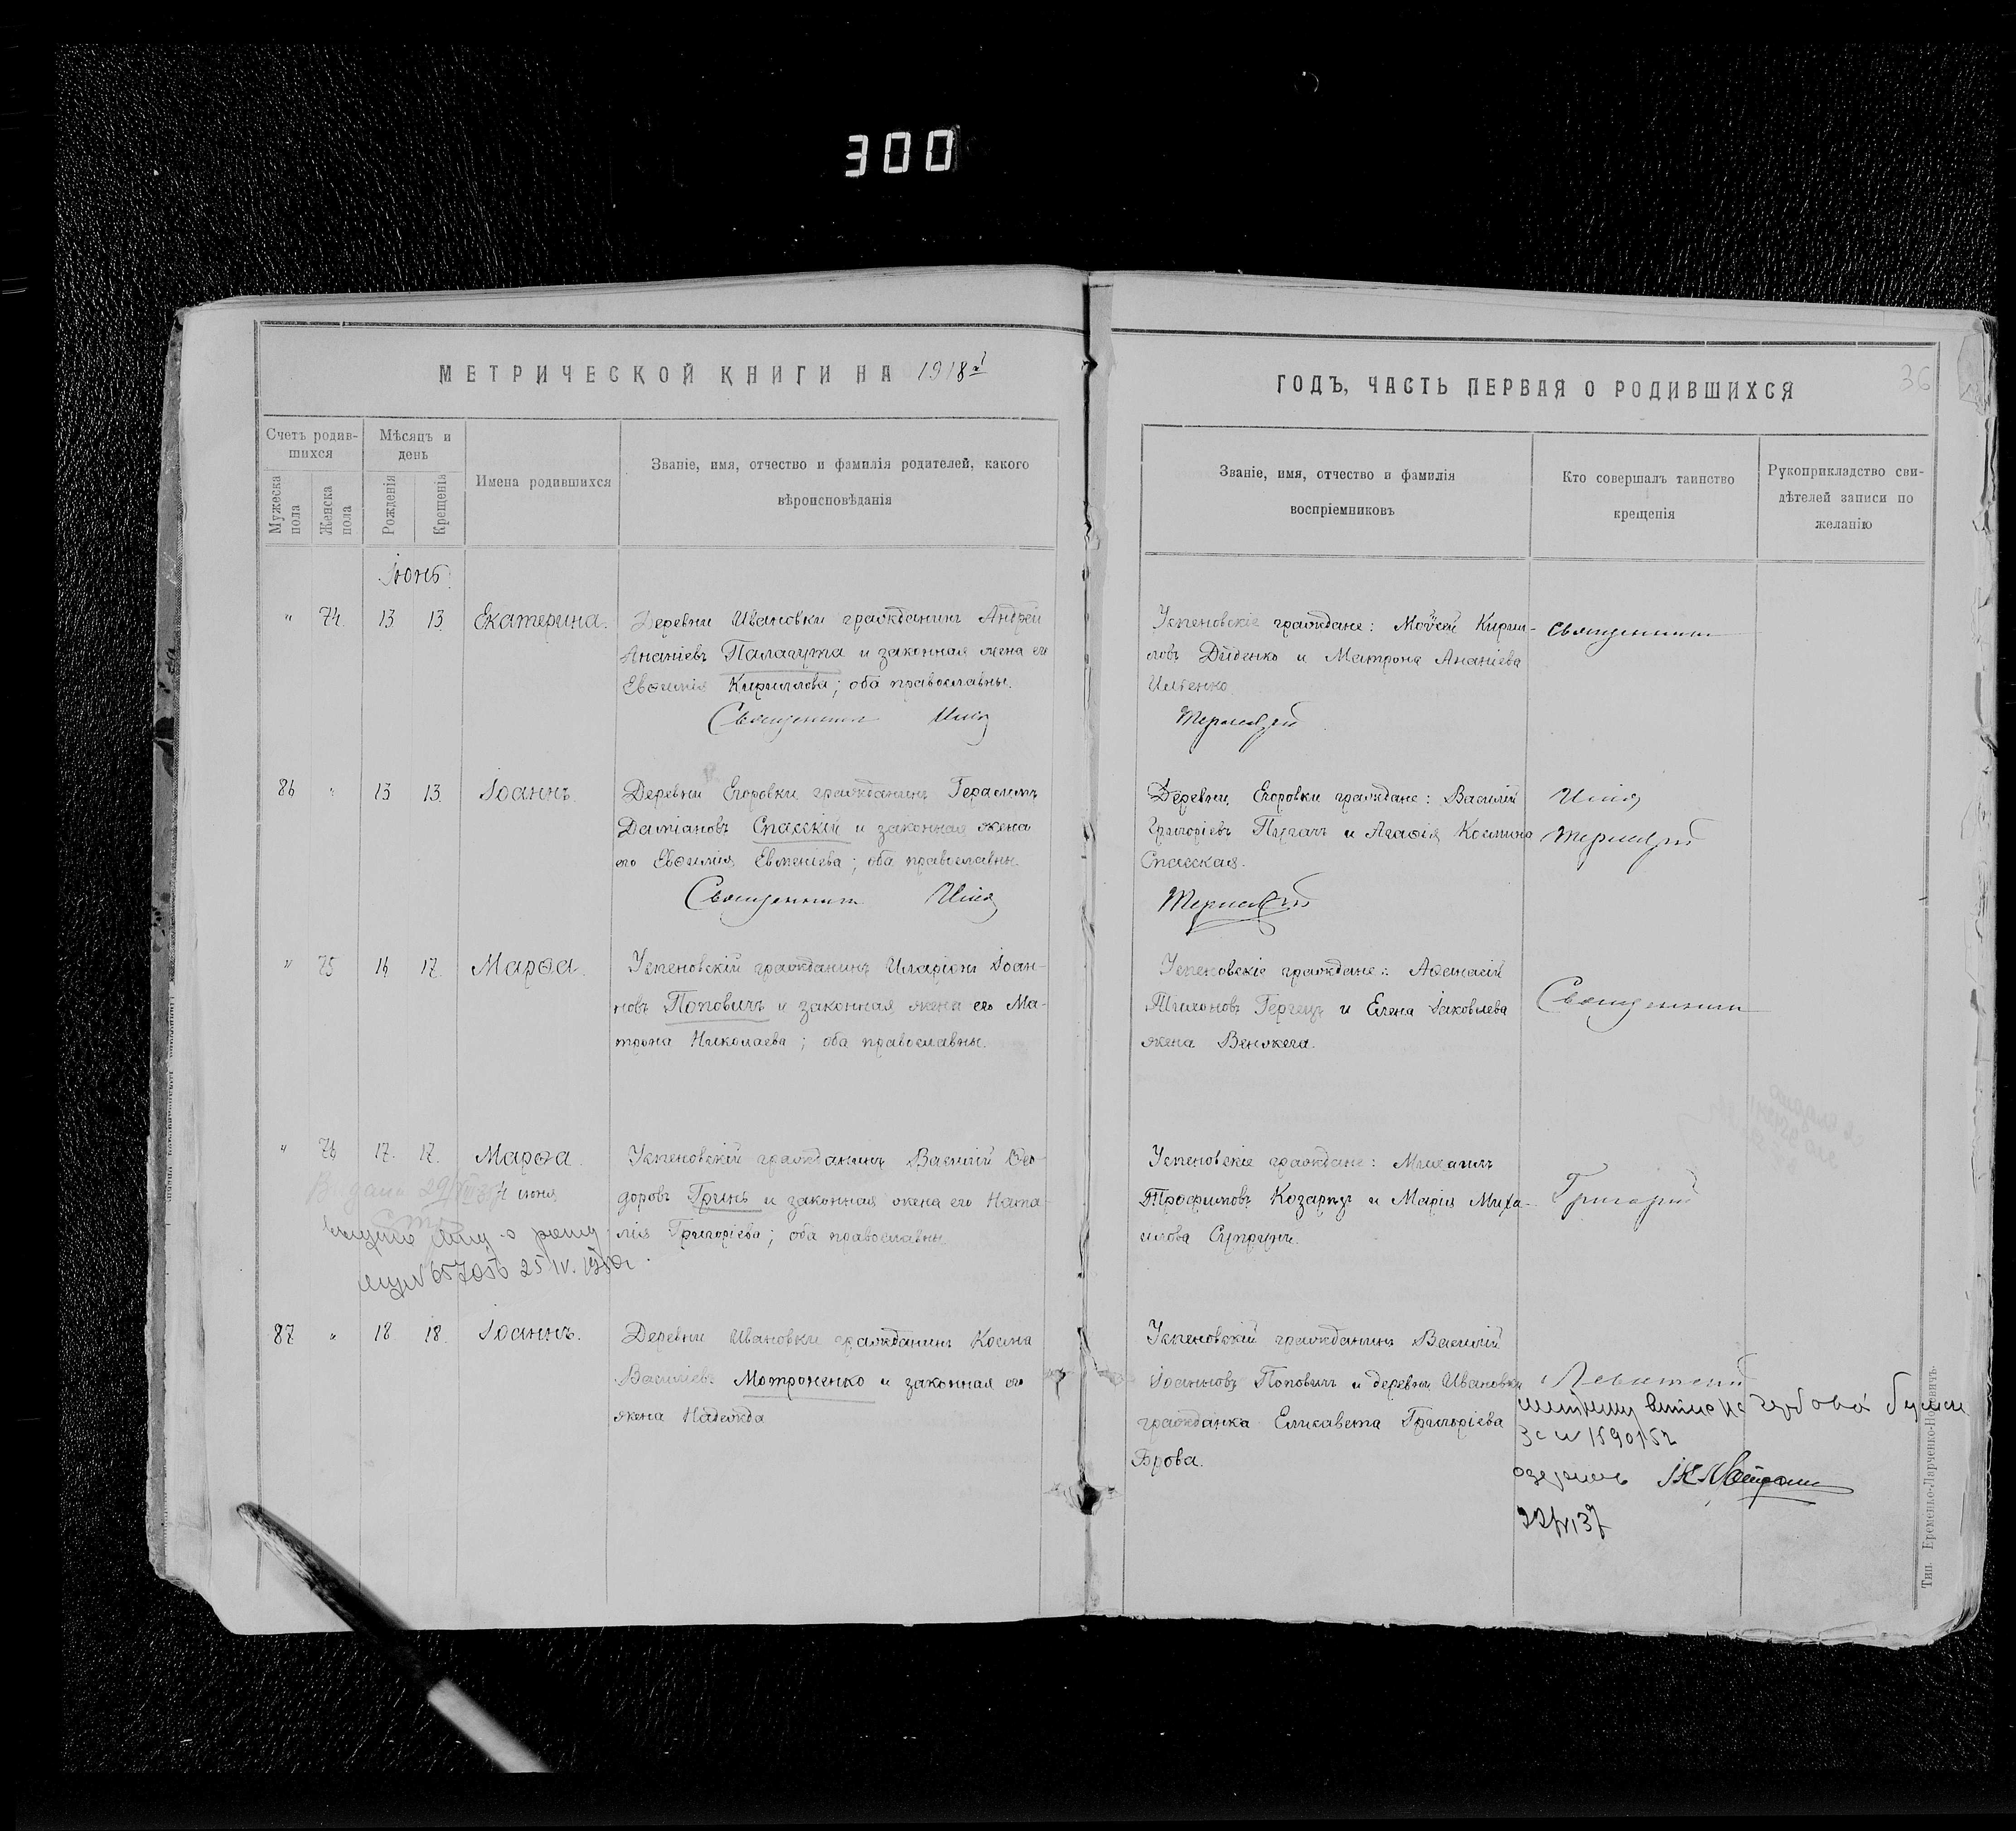 300
МЕТРИЧЕСКОЙ КНИГИ НА 1918й
ГОДЪ, ЧАСТЬ ПЕРВАЯ О РОДИВШИХСЯ
36
Счетъ родив-
шихся
Мѣсяцъ и
день
Мужеска
пола
Женска
пола
Рожденія
Крещенія
Имена родившихся
Званіе, имя, отчество и фамилія родителей, какого
вѣроисповѣданія
Званіе, имя, отчество и фамилія
воспріемниковъ
Кто совершалъ таинство
крещенія
Рукоприкладство сви-
дѣтелей записи по
желанію
Іюнь
" 74. 13 13. Екатерина.
Деревни Ивановки гражданинъ Андрей
Ананіевъ Палагута и законная жена его
Евѳимія Кириллова; оба православны.
Священникъ Илія
Успеновскіе граждане: Моѵсей Кирил-
ловъ Диденко и Матрона Ананіева
Ильенко.
Тернавскій
Священникъ
86 " 13 13. Іоаннъ.
Деревни Егоровки гражданинъ Герасимъ
Даміановъ Спасскій и законная жена
его Евѳимія Евменіева; оба православны.
Священникъ Илія
Деревни Егоровки граждане: Василій
Григоріевъ Пугачъ и Агаѳія Космина
Спасская.
Тернавскій
Илія
Тернавскій
" 75 16 17. Марѳа.
Успеновскій гражданинъ Иларіонъ Іоан-
новъ Поповичъ и законная жена его Ма-
трона Николаева; оба православны.
Успеновскіе граждане: Аѳанасій
Тихоновъ Гергецъ и Елена Іаковлева
жена Венжега.
Священникъ
" 76 17. 17. Марѳа.
Успеновскій гражданинъ Василій Ѳео-
доровъ Гринь и законная жена его Ната-
лія Григоріева; оба православны
Успеновскіе граждане: Михаилъ
Трофимовъ Козарязъ и Марія Миха-
илова Супрунъ.
Григорій
Выдана
4 июня
25/IV.
87 " 18 18. Іоаннъ.
Деревни Ивановки гражданинъ Косма
Василіевъ Мотроненко и законная его
жена Надежда
Успеновскій гражданинъ Василій
Іоанновъ Поповичъ и деревни Ивановки
гражданка Елисавета Григоріева
Брова.
Левитскій
гербовой
22/VI 37
Тип. Еременко-Ларченко-